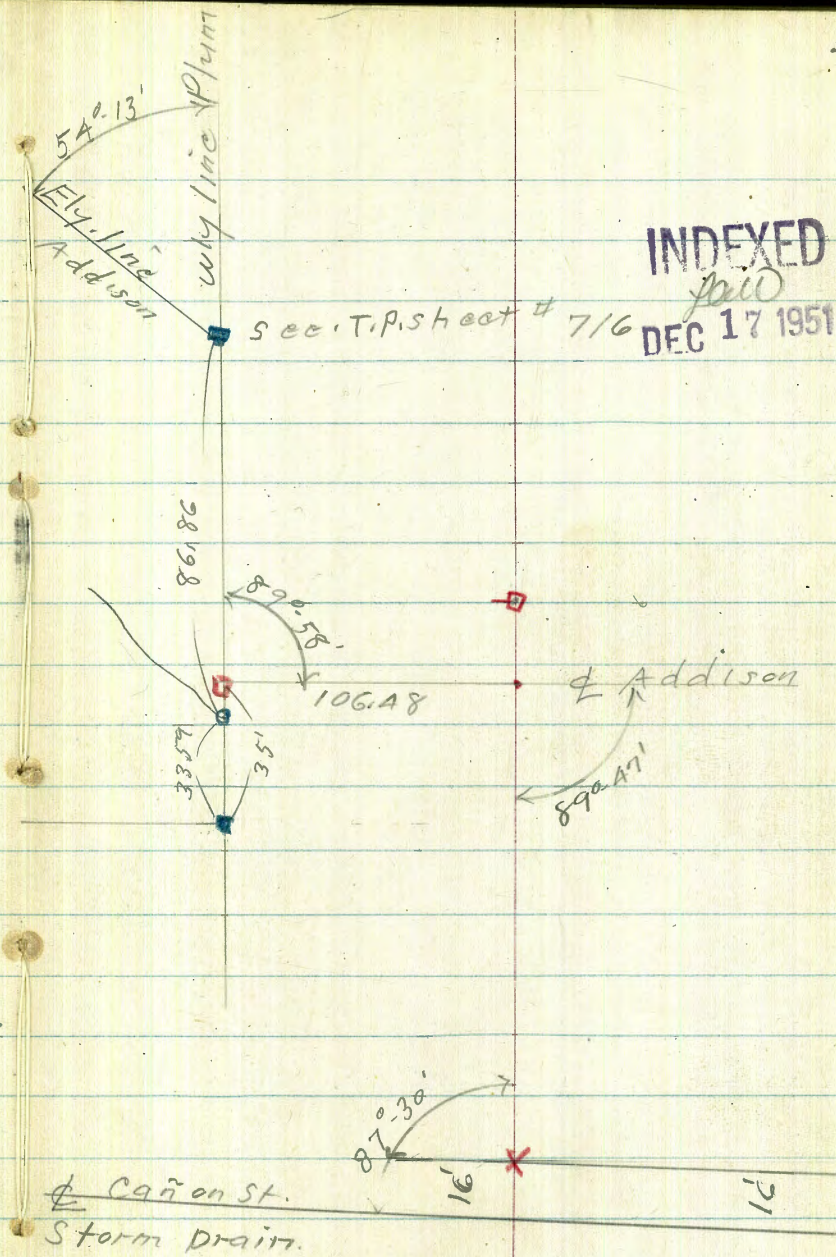 54°-13'
Wly line Plum
Ely. line
Addison
INDEXED
DEC 17 1951
See. T.P. sheet # 716
86.86
89°-58'
106.48
℄ Addison
33.59
35'
89°47'
87°-30'
16'
16'
℄ Cañon St.
Storm Drain.